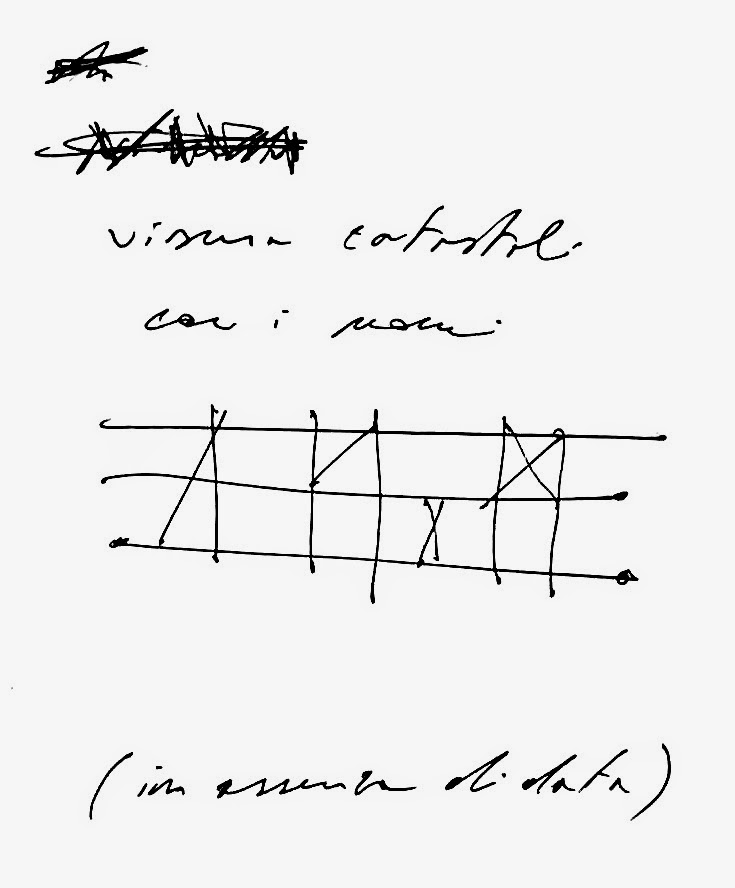 visura catastale
con i nomi
(in assenza di data)